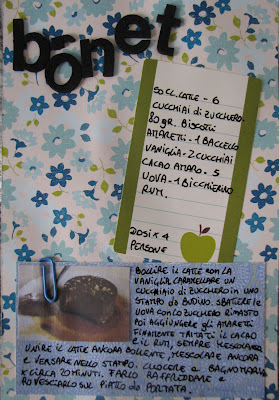 bonet
50 CL. LATTE - 6
CUCCHIAI di ZUCCHERO
80 gr. BISCOTTI
AMARETTI - 1 BACCELLO
VANIGLIA - 2 CUCCHIAI
CACAO AMARO - 5
UOVA - 1 BICCHIERINO
RUM.
DOSI X 4
PERSONE
BOLLIRE IL LATTE CON LA
VANIGLIA, CARAMELLARE UN
CUCCHIAIO di ZUCCHERO IN UNO
STAMPO da BUDINO. SBATTERE LE
UOVA CON LO ZUCCHERO RIMASTO
POI AGGIUNGERE gli AMARETTI
FINEMENTE TRITATI IL CACAO
E IL RUM, SEMPRE MESCOLANDO
UNIRE IL LATTE ANCORA BOLLENTE, MESCOLARE ANCORA
E VERSARE NELLO STAMPO. CUOCERE A BAGNOMARIA
X CIRCA 20 MINUTI. FARLO RAFFREDDARE E
ROVESCIARLO SUL PIATTO da PORTATA.